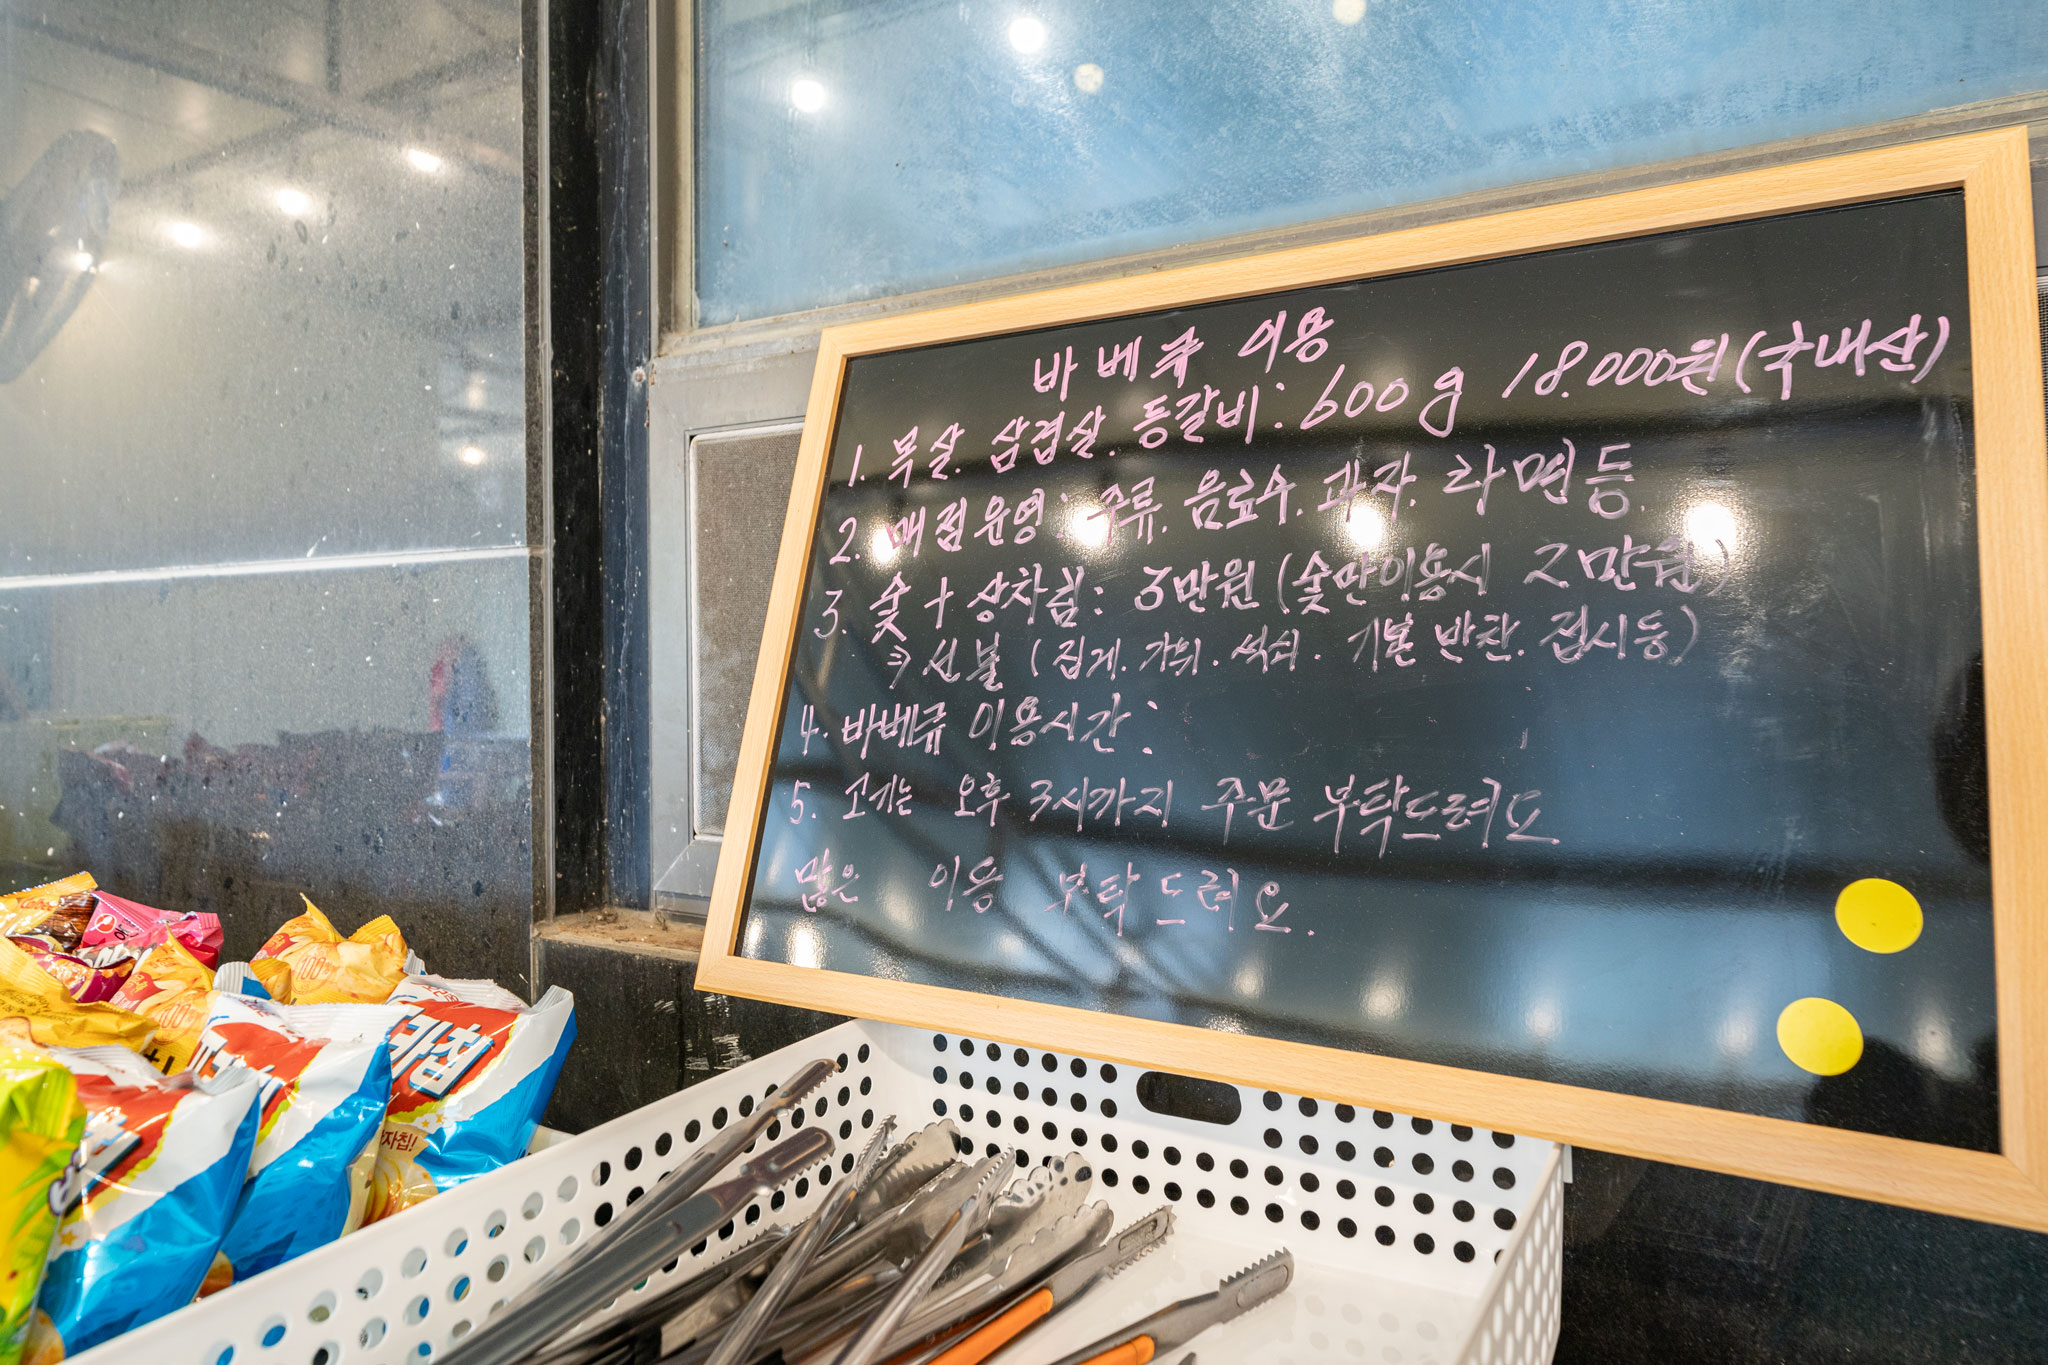 바베큐 이용
1. 목살. 삼겹살. 등갈비: 600g 18.000원(국내산)
2. 매점운영: 주류. 음료수. 과자. 라면등.
3. 숯+상차림: 3만원(숯만이용시 2만원)
⇒선불(집게. 가위. 석쇠. 기본반찬. 접시등)
4. 바베큐 이용시간:
5. 고기는 오후 3시까지 주문 부탁드려요
많은 이용 부탁드려요.
100%
100%
자칩!